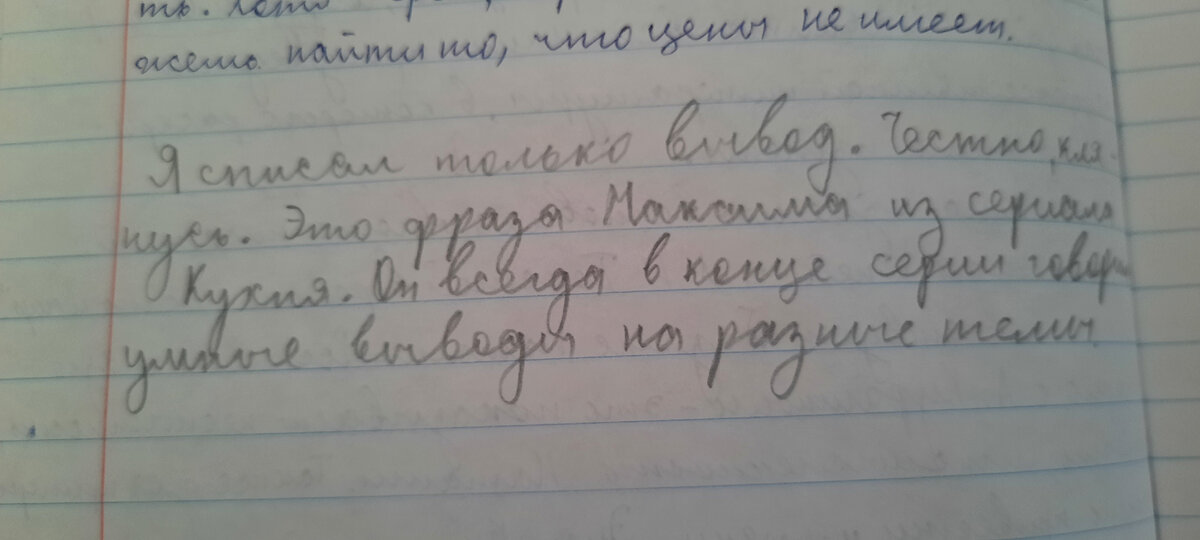 жешь найти то, что цены не имеет.
Я списал только вывод. Честно, кля-
нусь. Это фраза Максима из сериала
Кухня. Он всегда в конце серии говорит
умные выводы на разные темы.